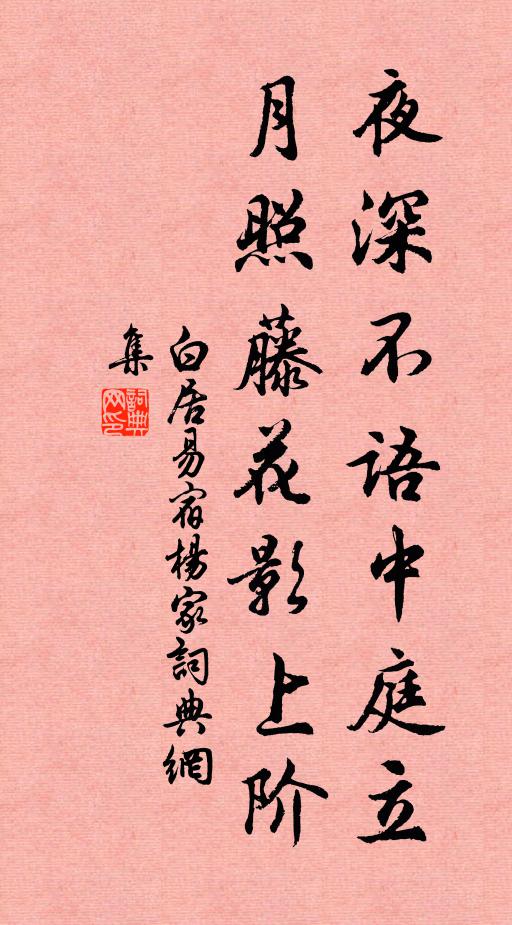 夜深不語中庭立
月照藤花影上阶
白居易宿楊家詞典網
集
詞典
网印